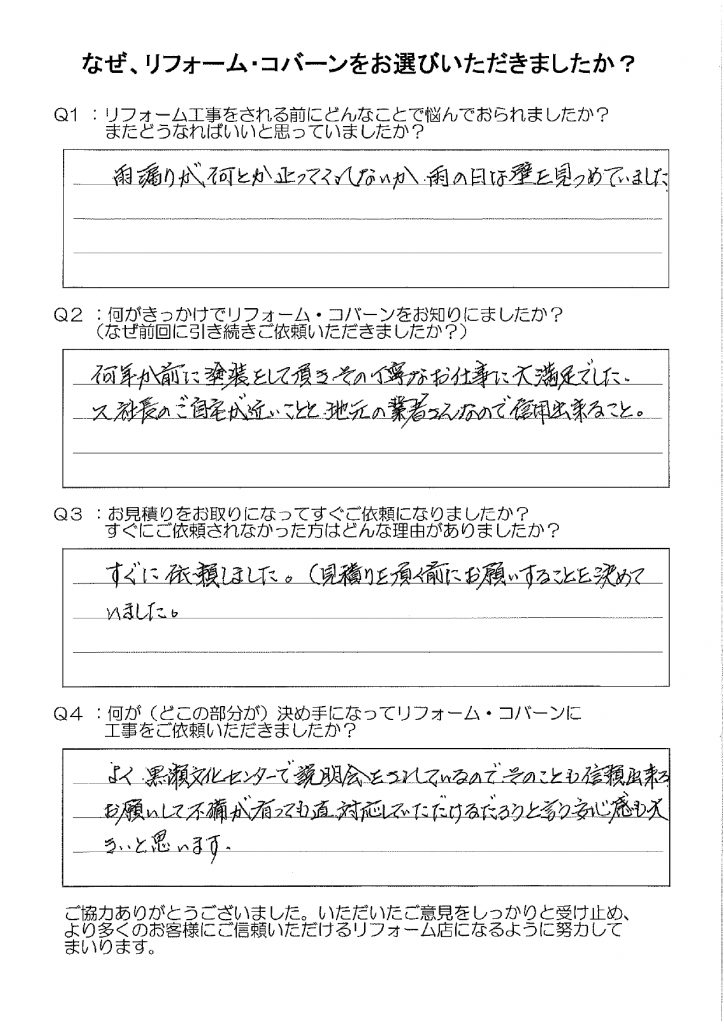 なぜ、リフォーム・コバーンをお選びいただきましたか？
Q1 ：リフォーム工事をされる前にどんなことで悩んでおられましたか？
またどうなればいいと思っていましたか？
雨漏りが、何とか止ってくれないか、雨の日は壁を見つめていました
Q2 ：何がきっかけでリフォーム・コバーンをお知りにましたか？
（なぜ前回に引き続きご依頼いただきましたか？）
何年か前に塗装をして頂きその丁寧なお仕事に大満足でした。
又社長のご自宅が近いことと地元の業者さんなので信用出来ること。
Q3 ：お見積りをお取りになってすぐご依頼になりましたか？
すぐにご依頼されなかった方はどんな理由がありましたか？
すぐに依頼しました。（見積りを頂く前にお願いすることを決めて
いました。
Q4 ：何が（どこの部分が）決め手になってリフォーム・コバーンに
工事をご依頼いただきましたか？
よく黒瀬文化センターで説明会をされているのでそのことも信頼出来る
お願いして不備が有っても直対応していただけるだろうと言う安心感も大
きいと思います。
ご協力ありがとうございました。いただいたご意見をしっかりと受け止め、
より多くのお客様にご信頼いただけるリフォーム店になるように努力して
まいります。